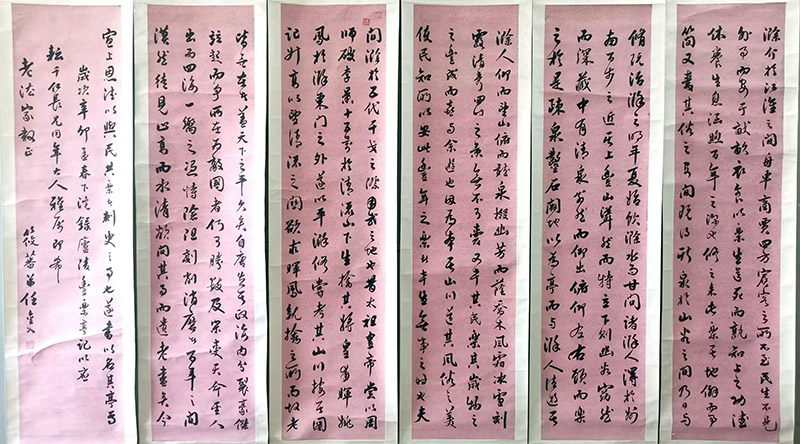 滁介於江淮之間舟車商賈四方賓客之所不至民生不見
外事而安于畎畝衣食以樂生送死而孰知上之功德
休養生息涵煦百年之深也修之來此樂其地僻而事
簡又愛其俗之安閒既得斯泉於山谷之間乃日與
脩既治滁之明年夏始飲滁水而甘問諸滁人得於州
南百步之近其上豐山聳然而特立下則幽谷窈然
而深藏中有清泉滃然而仰出俯仰左右顧而樂
之於是疏泉鑿石闢地以為亭而與滁人往遊其
滁人仰而望山俯而聽泉掇幽芳而蔭喬木風霜冰雪刻
露清秀四時之景無不可愛又幸其民樂其歲物之
豐成而喜與余遊也因為本其山川道其風俗之美
使民知所以安此豐年之樂者幸生無事之時也夫
間滁於五代干戈之際用武之地也昔太祖皇帝嘗以周
師破李景十五萬於清流山下生擒其將皇甫暉姚
鳳於滁東門之外遂以平滁修嘗考其山川按其圖
記升高以望清流之關欲求暉鳳就擒之所而故老
皆無在者蓋天下之平久矣自唐失其政海內分裂豪傑
並起而爭所在為敵國者何可勝數及宋受天命聖人
出而四海一嚮之憑恃險阻剗削消磨百年之間
漠然徒見山高而水清欲問其事而遺老盡矣今
宣上恩德以與民共樂刺史之事也遂書以名其亭焉
歲次辛卯孟春下浣錄廬陵豐樂亭記以應
耘千仁長兄同年大人雅屬即希
老法家教正
筱蕃弟任